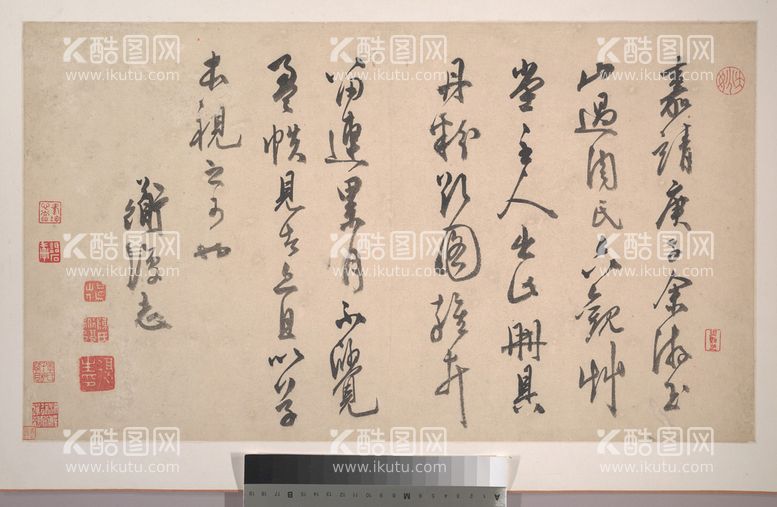 嘉靖庚子余游玉
山過周氏六觀艸
堂主人出此冊具
丹粉圖雜卉
留連累月不覺
盈帙見者且以草
本視之可也
衡復志
酷图网
www.ikutu.com
酷图网
www.ikutu.com
酷图网
www.ikutu.com
酷图网
www.ikutu.com
酷图网
www.ikutu.com
酷图网
www.ikutu.com
酷图网
www.ikutu.com
酷图网
www.ikutu.com
酷图网
www.ikutu.com